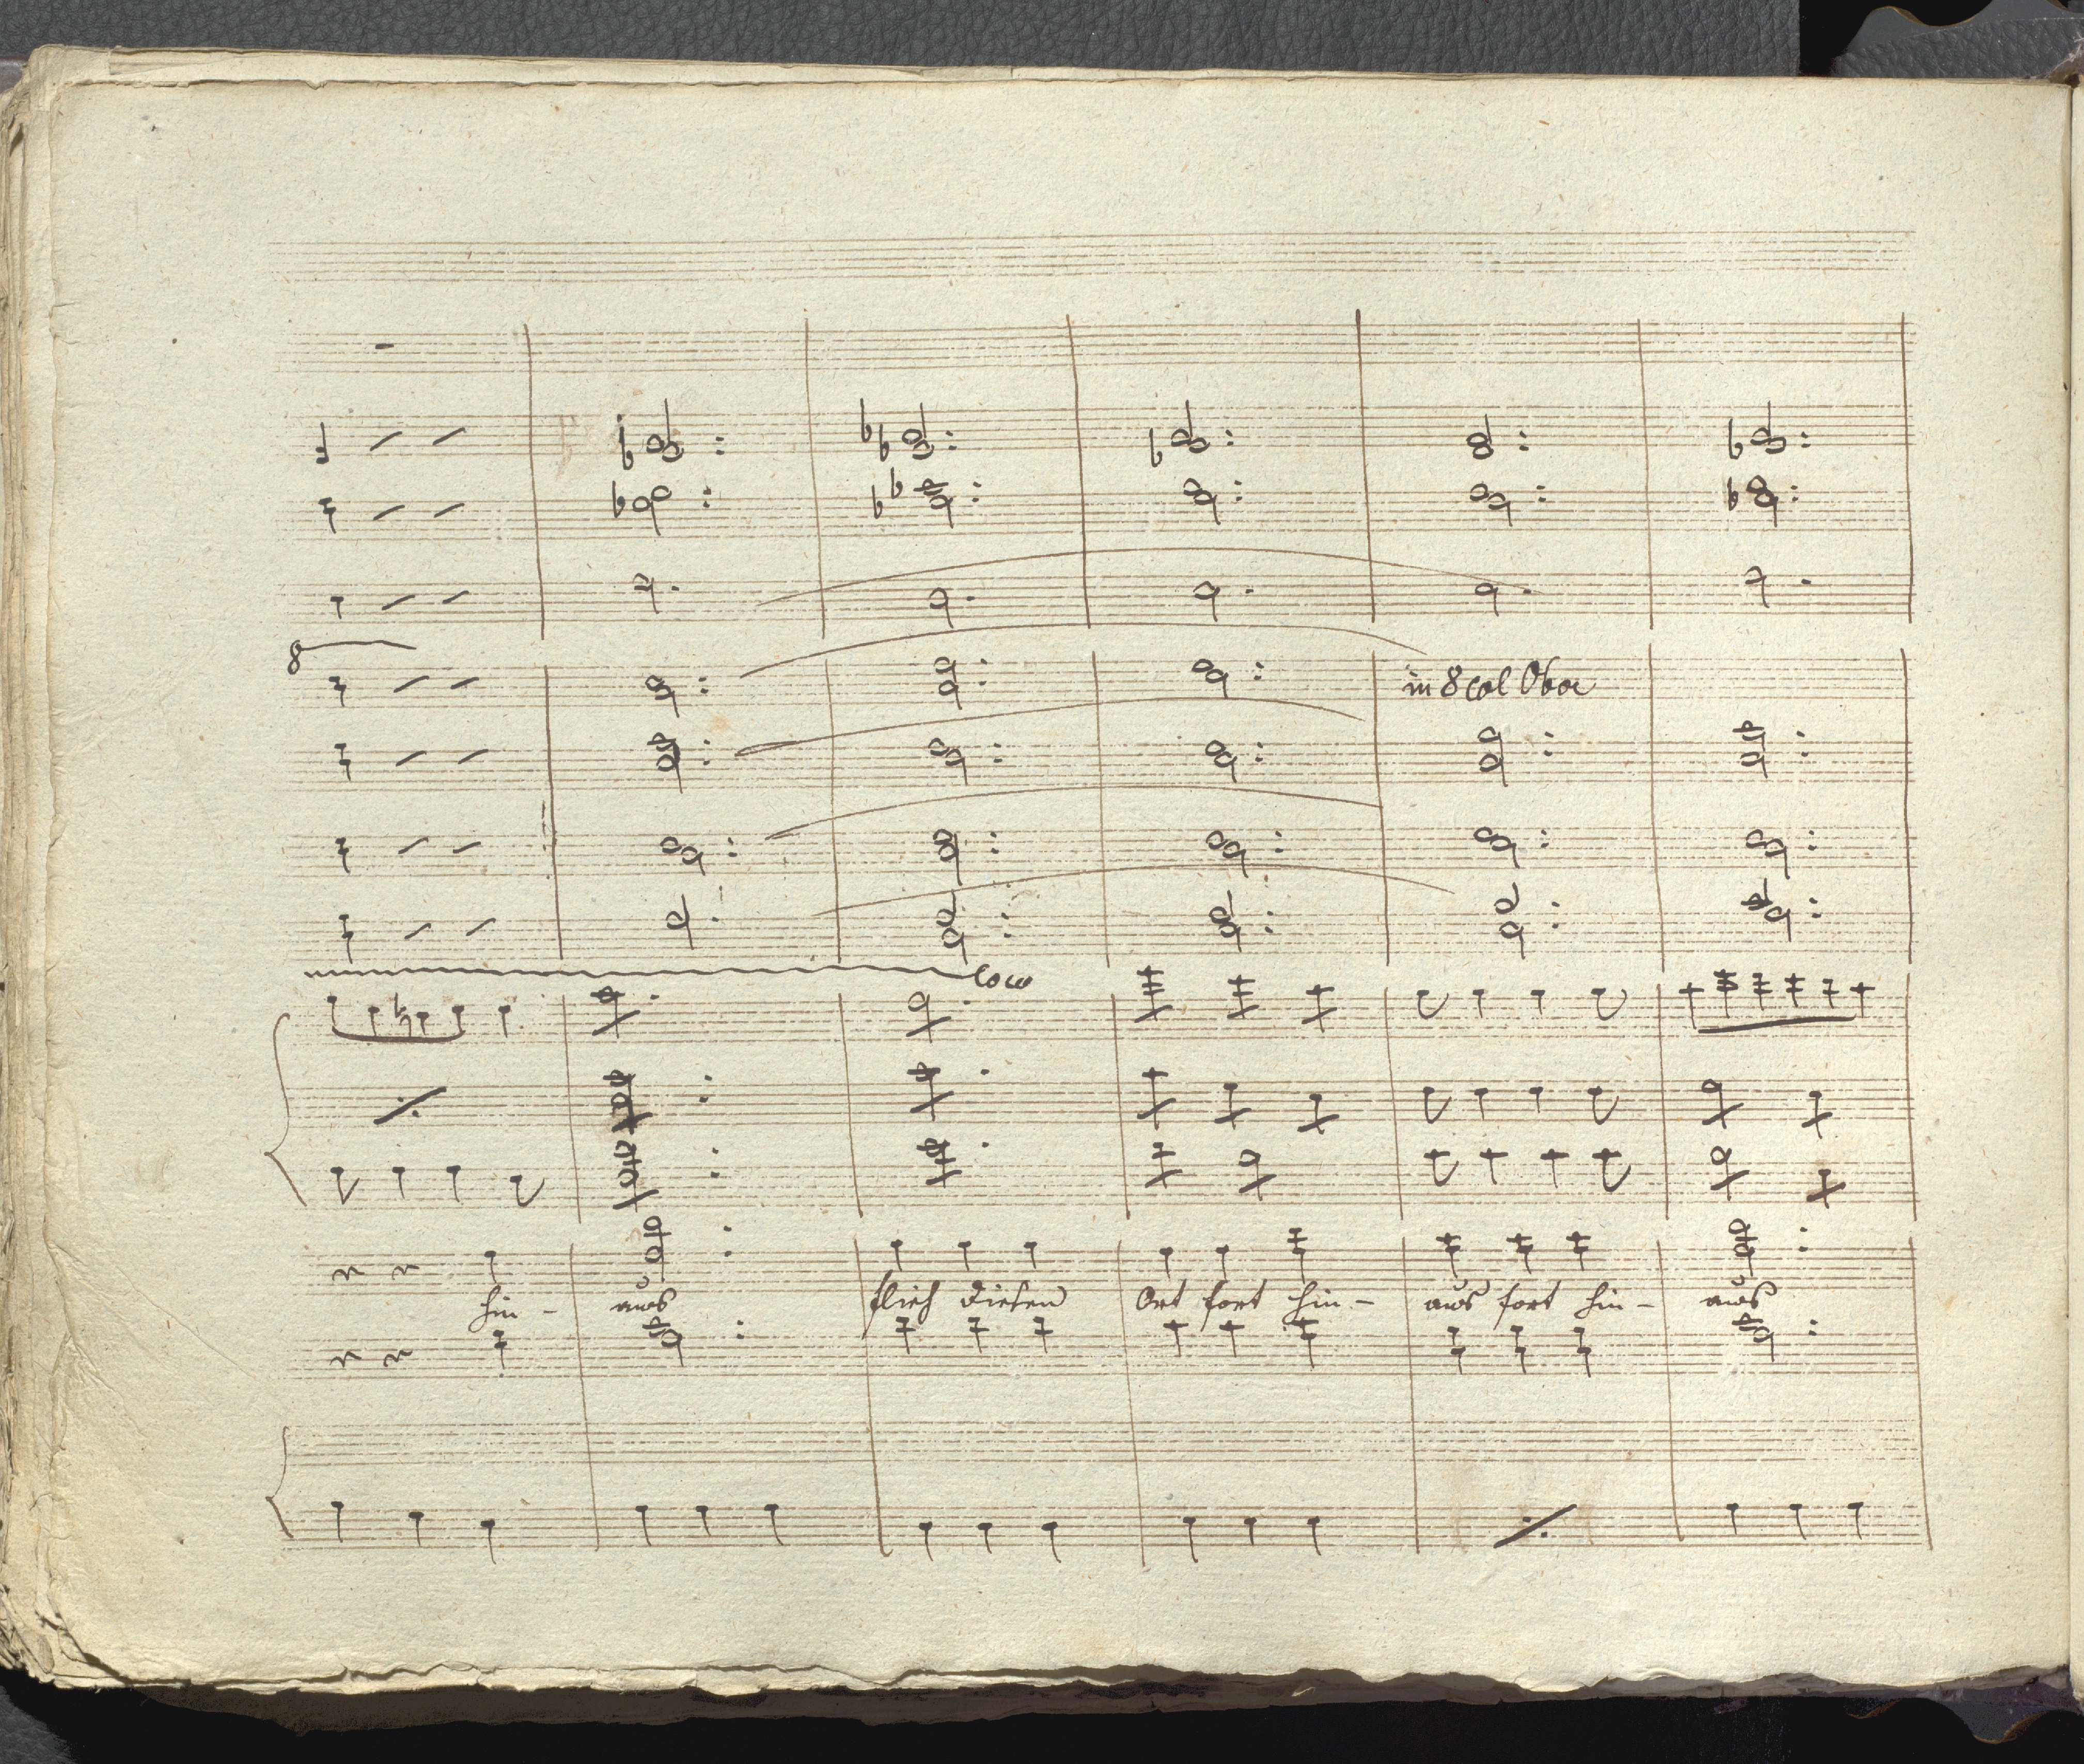 8
in 8 col Oboe
loco
hin - aus flieh diesen Ort fort hin - aus fort hin - aus